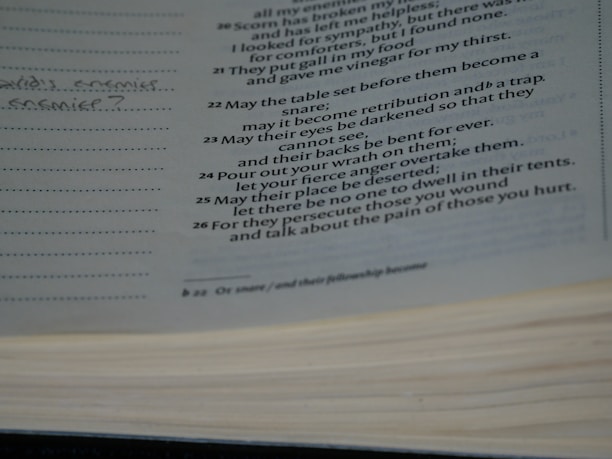 all my enemies
20 Scorn has broken my
and has left me helpless;
I looked for sympathy, but there was
for comforters, but I found none.
21 They put gall in my food
and gave me vinegar for my thirst.
22 May the table set before them become a
snare;
may it become retribution and b a trap.
23 May their eyes be darkened so that they
cannot see,
and their backs be bent for ever.
24 Pour out your wrath on them;
let your fierce anger overtake them.
25 May their place be deserted;
let there be no one to dwell in their tents.
26 For they persecute those you wound
and talk about the pain of those you hurt.
b 22 Or snare / and their fellowship become
enemies
enemies?